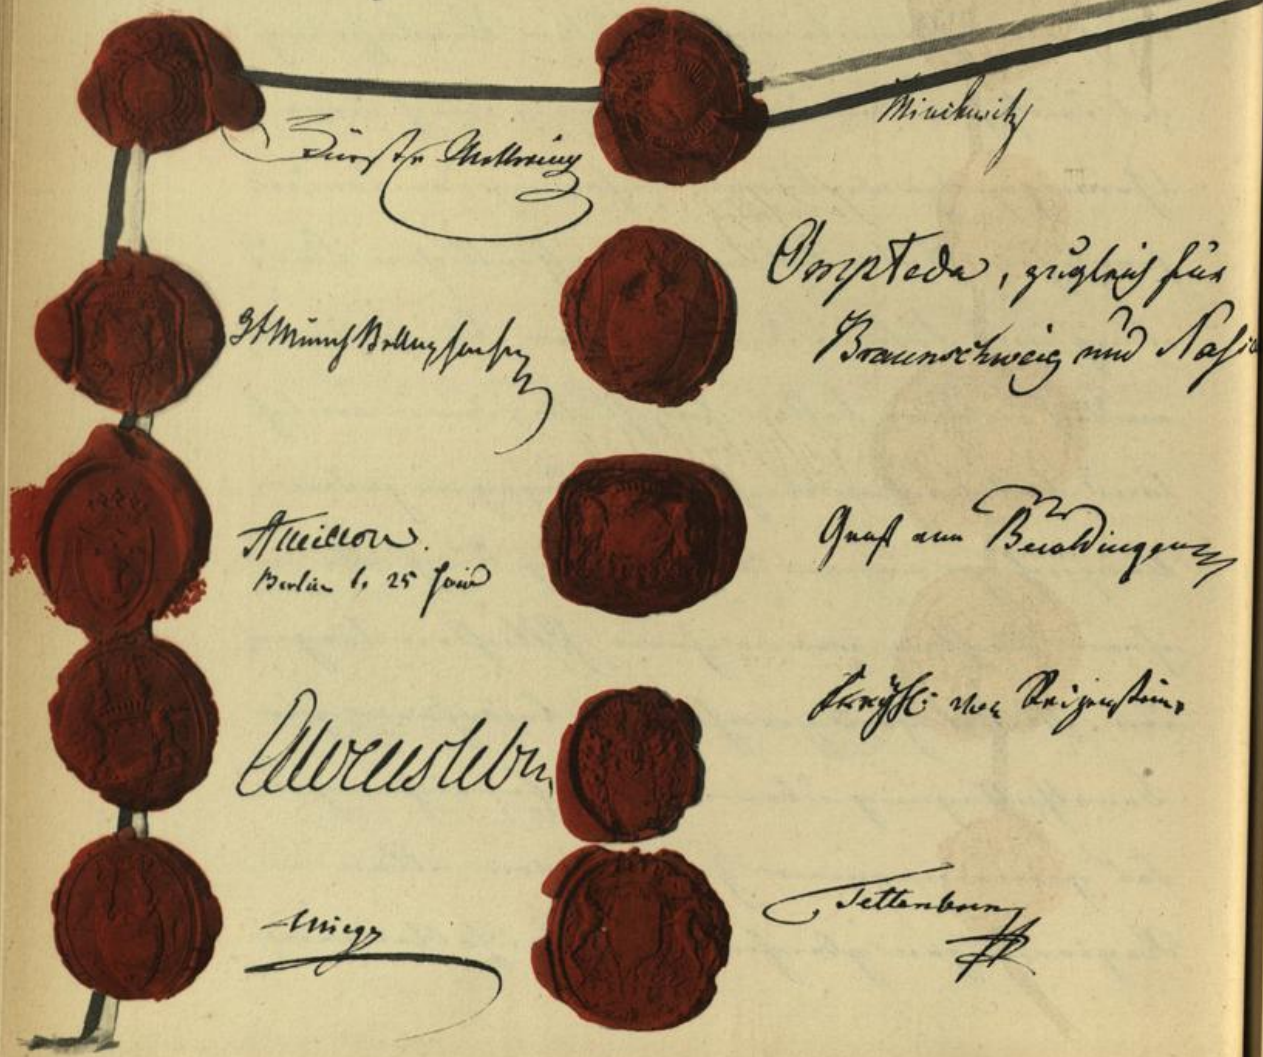 Fürst v Metternich
Gf Münch Bellinghausen
Ancillon.
Berlin d. 25 Juni
Alvensleben
Mieg
Minckwitz
Ompteda, zugleich für
Braunschweig und Nassau
Graf von Beroldingen
Frhr: von Reizenstein.
Tettenborn